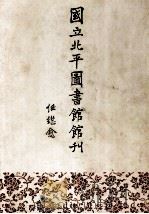 國立北平圖書館館刊
任繼愈